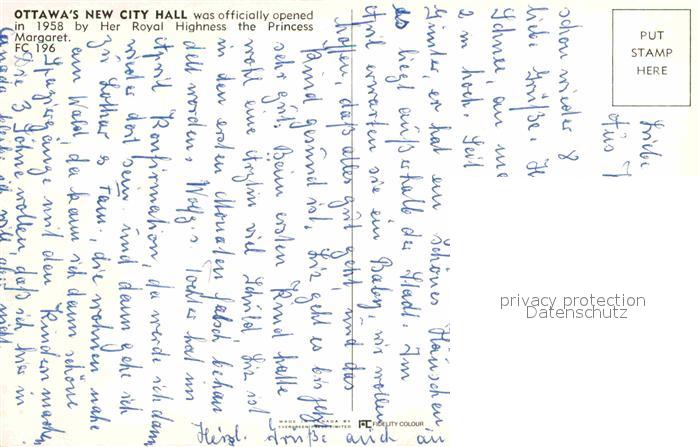 OTTAWA'S NEW CITY HALL was officially opened
in 1958 by Her Royal Highness the Princess
Margaret.
FC 196
PUT
STAMP
HERE
Liebe
schon wieder 8
liebe Grüße.
Schnee, an
2 m hoch. Seit
Günter, er hat ein schönes Häuschen
es liegt außerhalb der Stadt. Im
April erwarten sie ein Baby, wir wollen
hoffen, daß alles gut geht, und das
Kind gesund ist. geht es bis jetzt
sehr gut. Beim ersten Kind hatte
wohl eine Ärztin viel Schuld ist
in den ersten Monaten falsch behan
delt worden. Wolfg.s Tochter hat im
April Konfirmation, da werde ich dann
wieder dort sein und dann gehe ich
zu Lothar u. Fam., die wohnen nahe
am Wald, da kann ich dann schöne
Spaziergänge mit den Kindern machen.
Die 3 Söhne wollen, daß ich hier in
Canada
Herzl. Grüße auch an
privacy protection
Datenschutz
MADE IN CANADA BY
EVERGREEN PRESS LIMITED
FIDELITY COLOUR